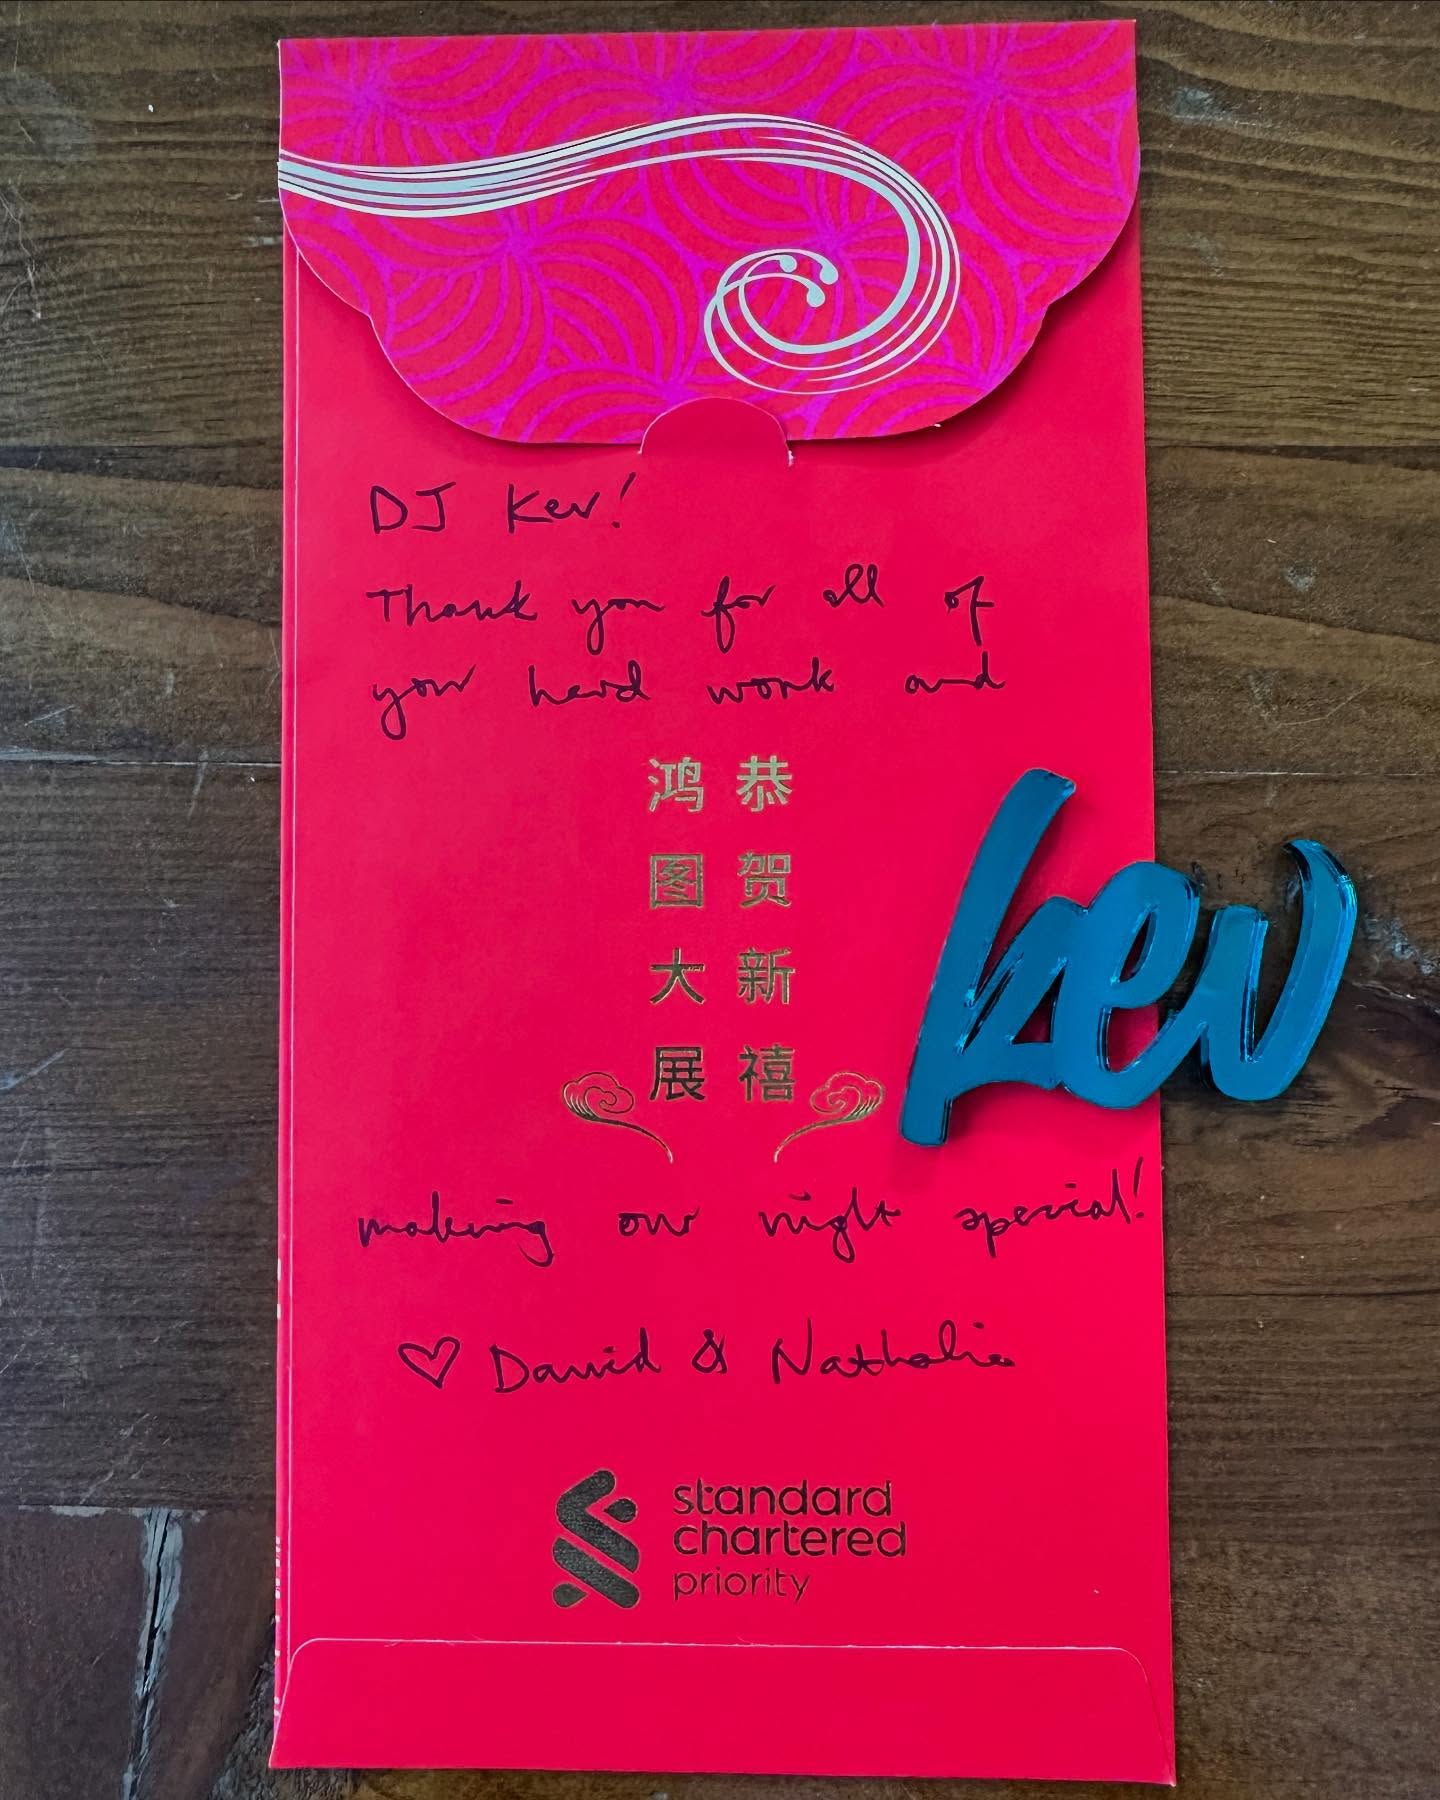 DJ Kev!
Thank you for all of
your hard work and
恭贺新禧
鸿图大展
Kev
making our night special!
♡ David & Nathalie
standard
chartered
priority